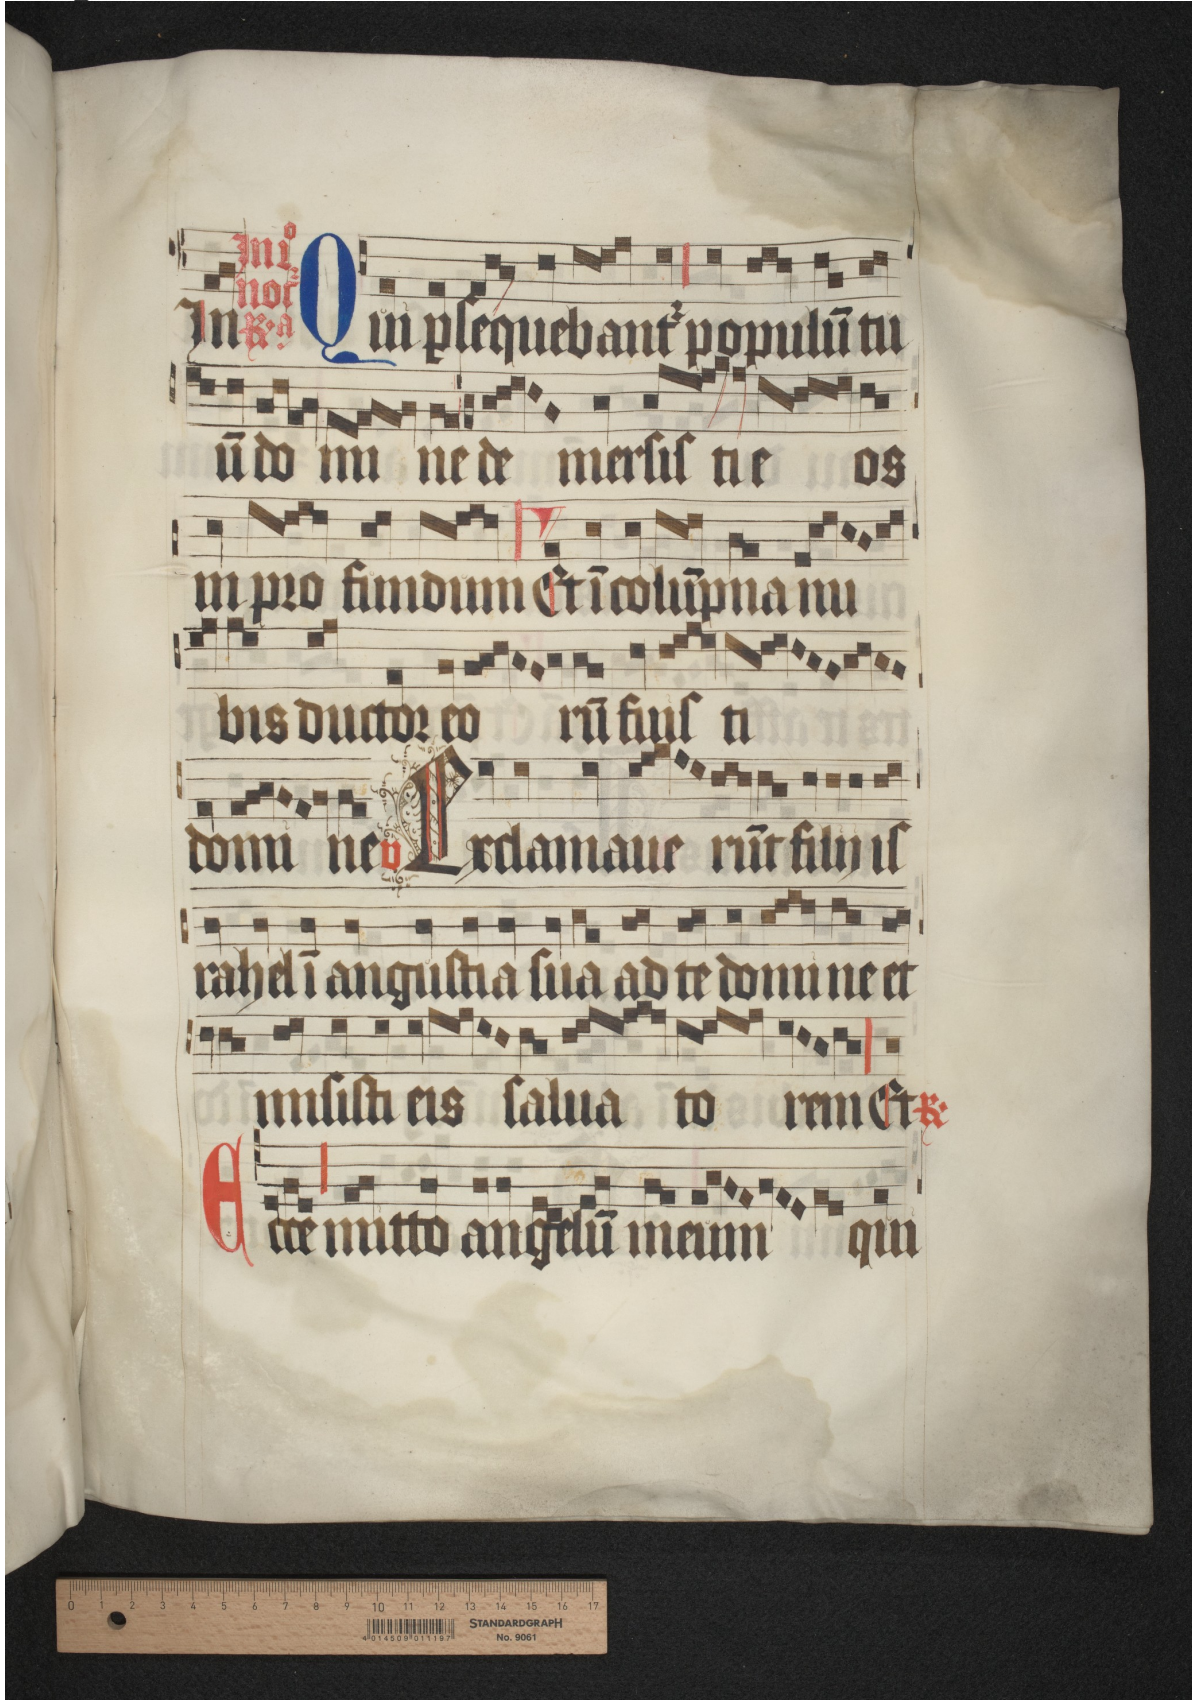 In In iº noct͛ ℟ a Qui ꝑsequebant᷑ populū tu
ū do mi ne de mersis ti e os
in pro fundum Et ī colūpna nu
bis ductor eo rū fuis ti
domi ne v Exclamaue rūt filij is
rahel ī angustia sua ad te domine et
misisti eis salua to rem Et ℟
Ecce mitto angelū meum qui
0 1 2 3 4 5 6 7 8 9 10 11 12 13 14 15 16 17
4 014509 011197
STANDARDGRAPH
No. 9061